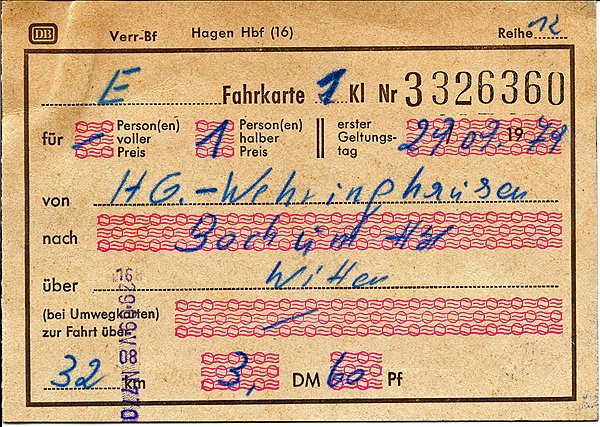 DB Verr-Bf Hagen Hbf (16) Reihe 12
E Fahrkarte 1 Kl Nr 3326360
für – Person(en) voller Preis 1 Person(en) halber Preis erster Geltungs-tag 29 07. 19 79
von HG.-Wehringhausen
nach Bochum Hbf
über Witten
(bei Umwegkarten)
zur Fahrt über —
32 km 3, DM 60 Pf